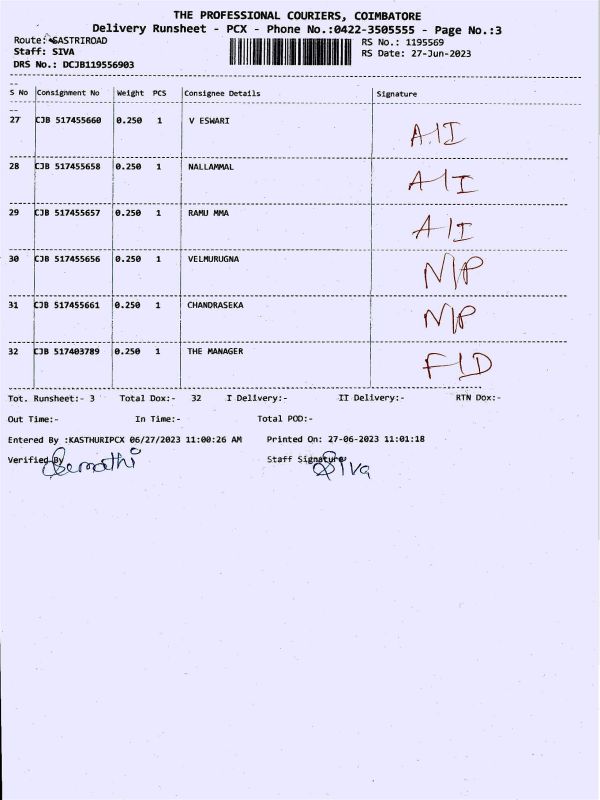 THE PROFESSIONAL COURIERS, COIMBATORE
Delivery Runsheet - PCX - Phone No.:0422-3505555 - Page No.:3
Route: SASTRIROAD RS No.: 1195569
Staff: SIVA RS Date: 27-Jun-2023
DRS No.: DCJB119556903
S No Consignment No Weight PCS Consignee Details Signature
27 CJB 517455660 0.250 1 V ESWARI A/I
28 CJB 517455658 0.250 1 NALLAMMAL A/I
29 CJB 517455657 0.250 1 RAMU MMA A/I
30 CJB 517455656 0.250 1 VELMURUGNA N/P
31 CJB 517455661 0.250 1 CHANDRASEKA N/P
32 CJB 517403789 0.250 1 THE MANAGER F/D
Tot. Runsheet:- 3 Total Dox:- 32 I Delivery:- II Delivery:- RTN Dox:-
Out Time:- In Time:- Total POD:-
Entered By :KASTHURIPCX 06/27/2023 11:00:26 AM Printed On: 27-06-2023 11:01:18
Verified By Staff Signature Siva